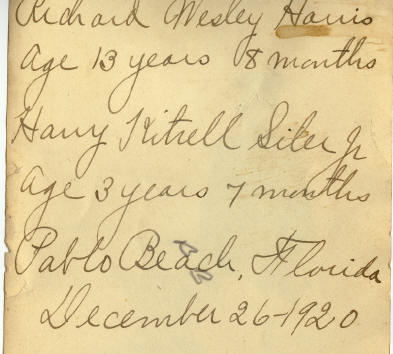 Richard Wesley Harris
Age 13 years 8 months
Harry Kitrell Siler Jr
Age 3 years 7 months
Pablo Beach, Florida
December 26-1920